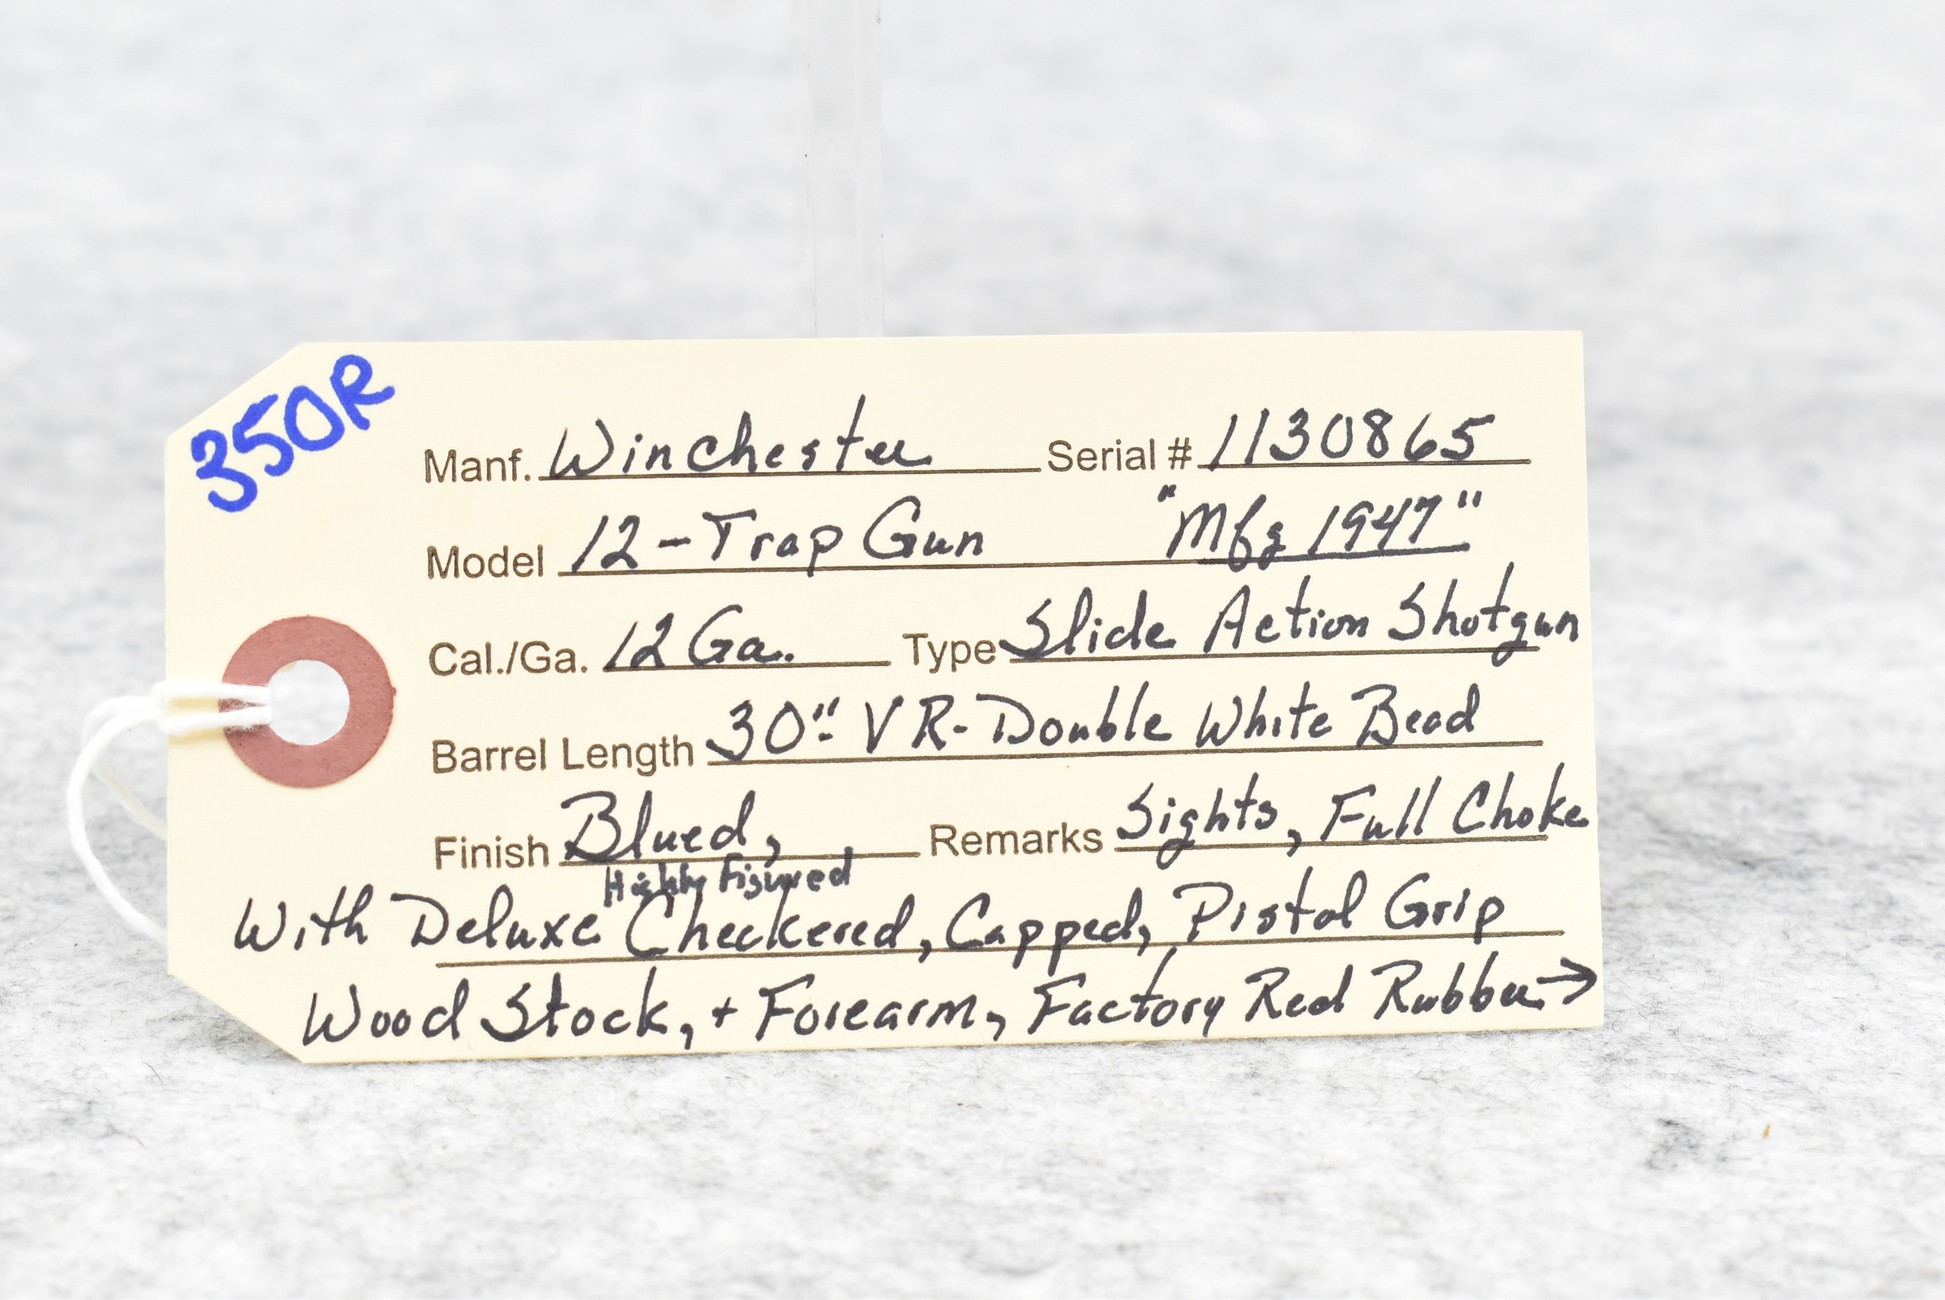 350R
Manf. Winchester Serial # 1130865
Model 12-Trap Gun "Mfg 1947"
Cal./Ga. 12 Ga. Type Slide Action Shotgun
Barrel Length 30" VR-Double White Bead
Finish Blued, Remarks Sights, Full Choke
Highly Figured
With Deluxe Checkered, Capped, Pistol Grip
Wood Stock, + Forearm, Factory Red Rubber →